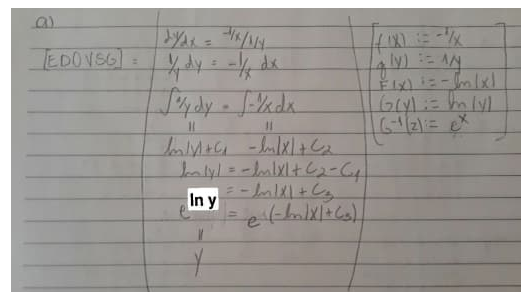 a)
dy/dx = -1/x/1/y
[EDOVSG] = 1/y dy = -1/x dx
∫1/y dy = ∫-1/x dx
" "
ln|y|+C₁ -ln|x|+C₂
ln|y| = -ln|x|+C₂-C₁
= -ln|x|+C₃
e ln y = e^(-ln|x|+C₃)
"
y
f(x) := -1/x
g(y) := 1/y
F(x) := -ln|x|
G(y) := ln|y|
G⁻¹(z) := eˣ